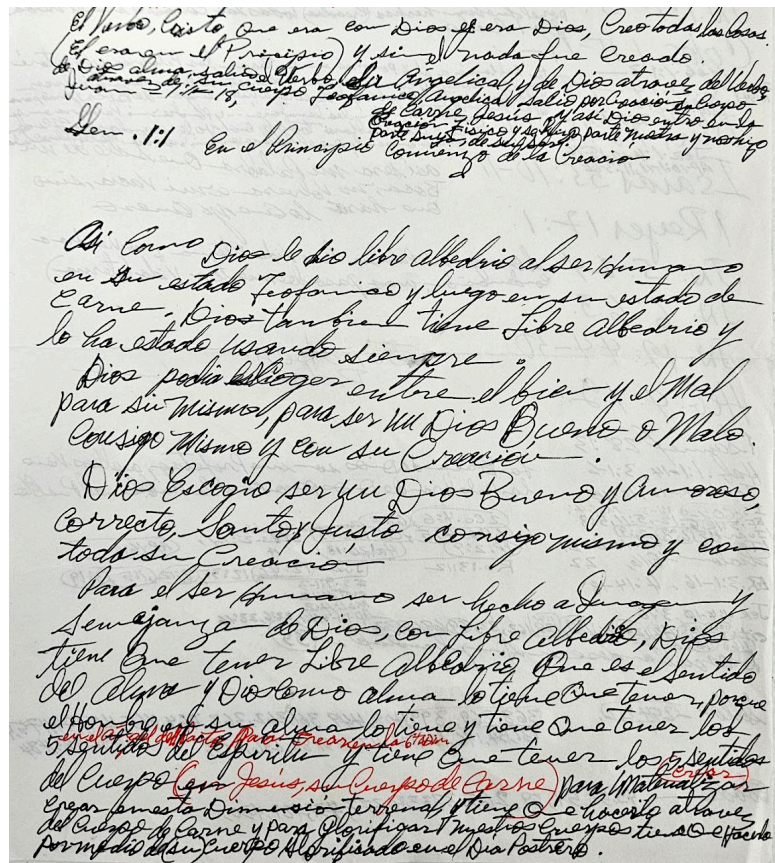 El Verbo, Cristo que era con Dios y era Dios, Creo todas las Cosas.
(El era en el Principio) y sin el nada fue creado.
de Dios alma, salio el Verbo, Angelical, y de Dios atravez del Verbo,
atravez de su Cuerpo Teofanico, Angelical salio por Creacion su Cuerpo
Juan
de Carne, Jesus y asi Dios entro en la
Creacion
parte
Gen. 1:1 En el Principio
Comienzo de la Creacion
Asi Como Dios le dio libre albedrio al ser Humano
en su estado Teofanico y luego en su estado de
Carne. Dios tambien tiene Libre Albedrio y
lo ha estado usando siempre.
Dios podia escoger entre el bien y el Mal
para si mismo, para ser un Dios Bueno o Malo
Consigo Mismo y con su Creacion.
Dios Escogio ser un Dios Bueno y Amoroso,
Correcto, Santo y Justo consigo mismo y con
toda su Creacion
Para el ser Humano ser hecho a Imagen y
Semejanza de Dios, con Libre Albedrio, Dios
tiene Que tener Libre Albedrio Que es el Sentido
del Alma y Dios como alma lo tiene Que tener, porque
el Hombre en su alma lo tiene y tiene Que tener los
5 Sentido del Espiritu y tiene Que tener los 5 sentidos
del Cuerpo (en Jesús, su Cuerpo de Carne) para Materializar (Crear)
Crear en esta Dimension terrenal, y tiene Que hacerlo atravez
del Cuerpo de Carne y para Glorificar Nuestros Cuerpos tiene Que Hacerlo
por medio de (su) Cuerpo Glorificado en el Dia Postrero.